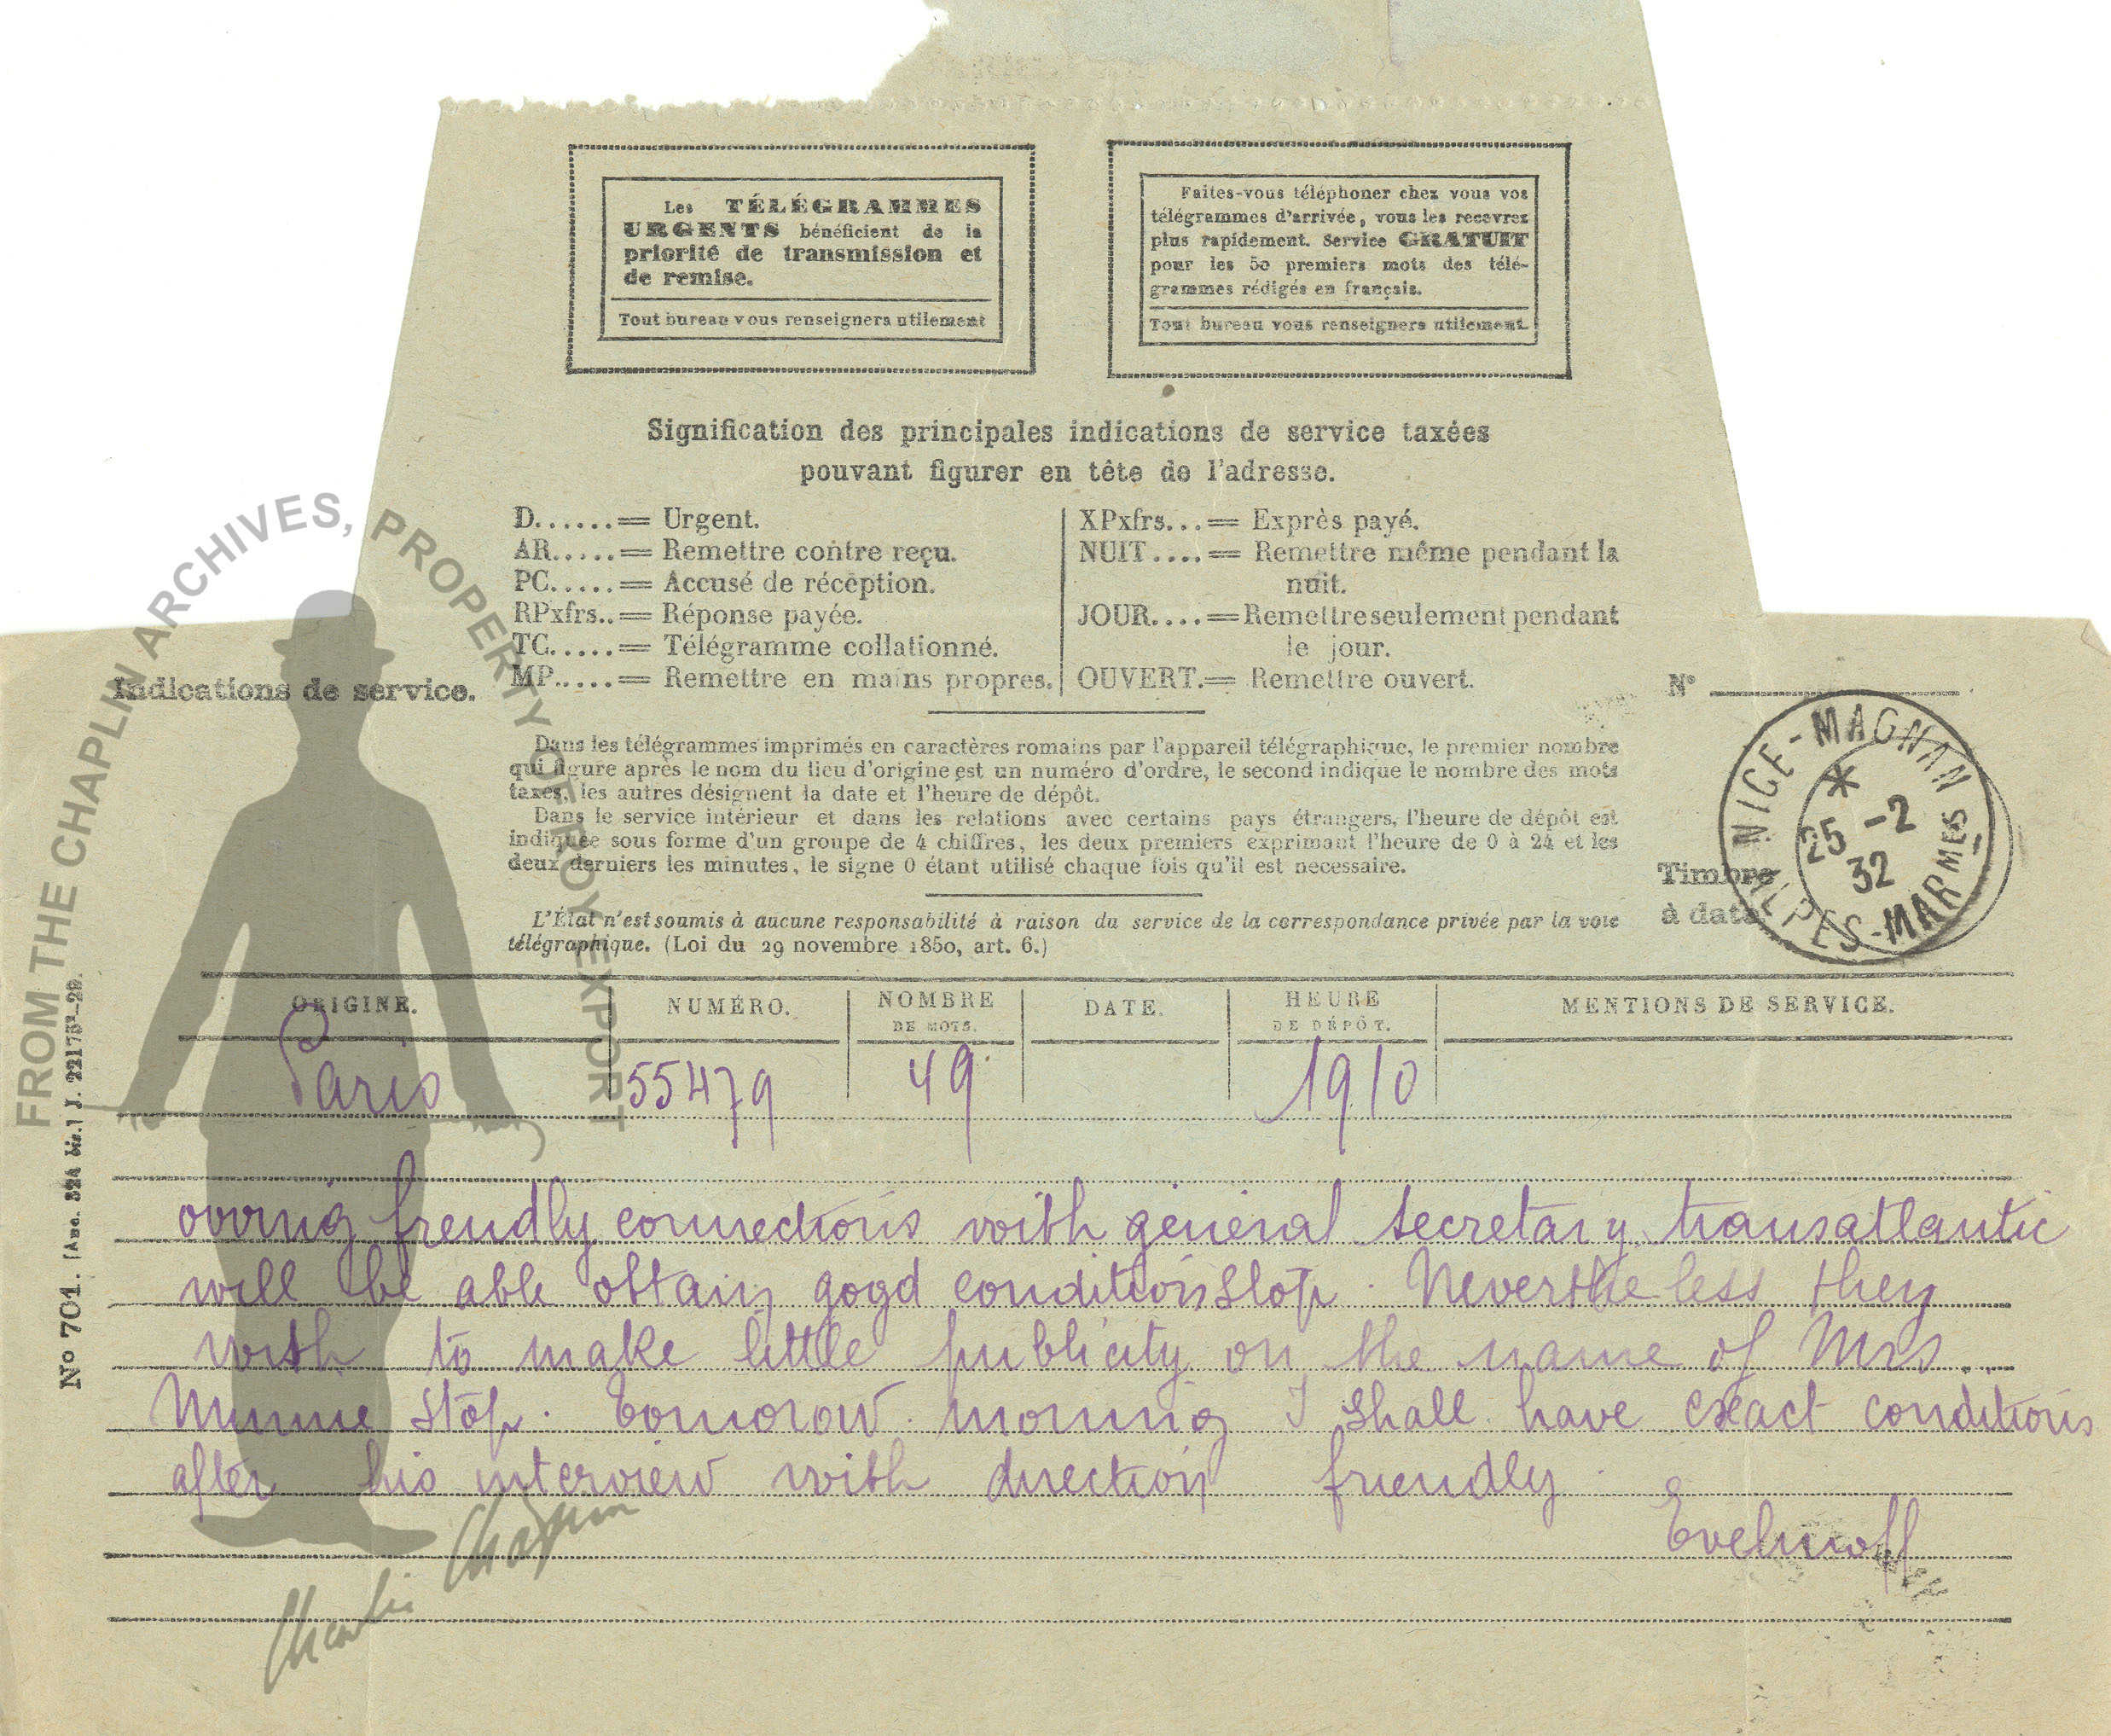 Les TÉLÉGRAMMES
URGENTS bénéficient de la
priorité de transmission et
de remise.
Tout bureau vous renseignera utilement
Faites-vous téléphoner chez vous vos
télégrammes d'arrivée, vous les recevrez
plus rapidement. Service GRATUIT
pour les 50 premiers mots des télé-
grammes rédigés en français.
Tout bureau vous renseignera utilement.
Signification des principales indications de service taxées
pouvant figurer en tête de l'adresse.
D......= Urgent.
AR.....= Remettre contre reçu.
PC.....= Accusé de réception.
RPxfrs..= Réponse payée.
TC.....= Télégramme collationné.
MP.....= Remettre en mains propres.
XPxfrs...= Exprès payé.
NUIT....= Remettre même pendant la
nuit.
JOUR....= Remettre seulement pendant
le jour.
OUVERT.= Remettre ouvert.
Indications de service.
N°
Dans les télégrammes imprimés en caractères romains par l'appareil télégraphique, le premier nombre
qui figure après le nom du lieu d'origine est un numéro d'ordre, le second indique le nombre des mots
taxés, les autres désignent la date et l'heure de dépôt.
Dans le service intérieur et dans les relations avec certains pays étrangers, l'heure de dépôt est
indiquée sous forme d'un groupe de 4 chiffres, les deux premiers exprimant l'heure de 0 à 24 et les
deux derniers les minutes, le signe 0 étant utilisé chaque fois qu'il est necessaire.
L'État n'est soumis à aucune responsabilité à raison du service de la correspondance privée par la voie
télégraphique. (Loi du 29 novembre 1850, art. 6.)
Timbre
à date
NICE-MAGNAN
25 -2
32
ALPES-MARMES
ORIGINE. NUMÉRO. NOMBRE DE MOTS. DATE. HEURE DE DÉPÔT. MENTIONS DE SERVICE.
Paris 55479 49 1910
owing frendly connections with general secretary transatlantic
will be able obtain good condition stop. Nevertheless they
wish to make little publicity on the name of Mrs.
Minnie stop. Tomorow morning I shall have exact conditions
after his interview with direction friendly.
Evelinoff
No 701. J. 22175-29.
FROM THE CHAPLIN ARCHIVES, PROPERTY OF ROY EXPORT
Charlie Chaplin